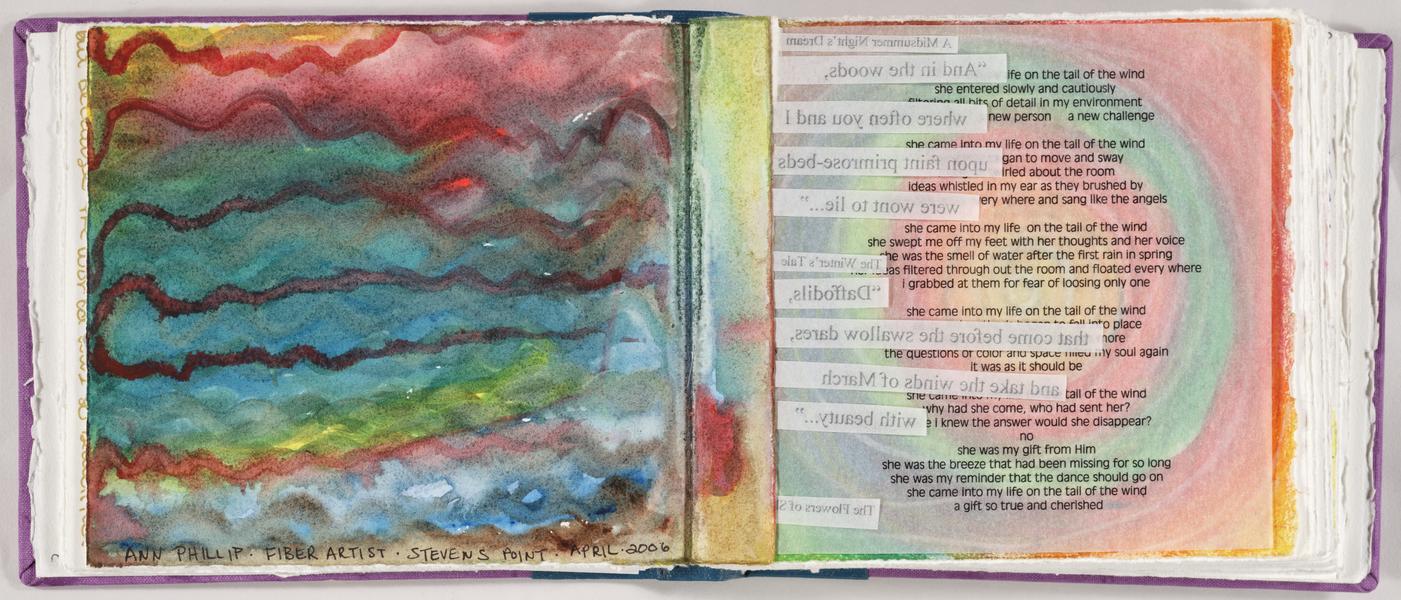 ANN PHILLIP · FIBER ARTIST · STEVENS POINT · APRIL · 2006
A Midsummer Night's Dream
"And in the woods,
where often you and I
upon faint primrose-beds
were wont to lie..."
The Winter's Tale
"Daffodils,
that come before the swallow dares,
and take the winds of March
with beauty..."
The Flowers of
life on the tail of the wind
she entered slowly and cautiously
filtering all bits of detail in my environment
new person a new challenge
she came into my life on the tail of the wind
gan to move and sway
rled about the room
ideas whistled in my ear as they brushed by
ery where and sang like the angels
she came into my life on the tail of the wind
she swept me off my feet with her thoughts and her voice
she was the smell of water after the first rain in spring
ideas filtered through out the room and floated every where
i grabbed at them for fear of loosing only one
she came into my life on the tail of the wind
began to fall into place
more
the questions of color and space filled my soul again
it was as it should be
she came into my tail of the wind
why had she come, who had sent her?
i knew the answer would she disappear?
no
she was my gift from Him
she was the breeze that had been missing for so long
she was my reminder that the dance should go on
she came into my life on the tail of the wind
a gift so true and cherished